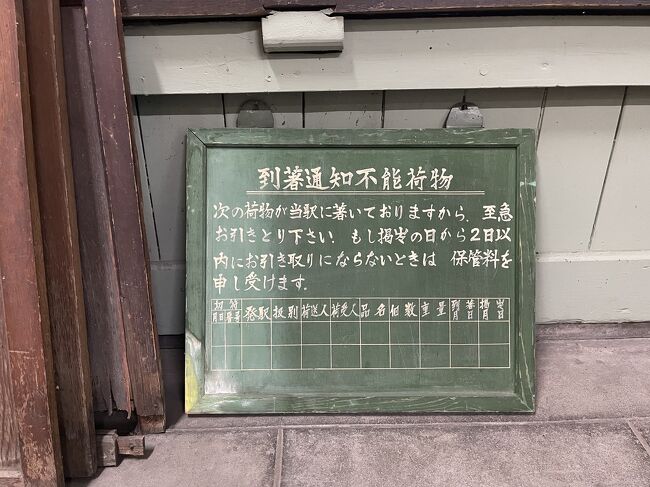 到著通知不能荷物
次の荷物が当駅に著いておりますから、至急
お引きとり下さい。もし掲示の日から2日以
内にお引き取りにならないときは 保管料を
申し受けます。
切符 発駅 扱別 荷送人 荷受人 品名 個数 重量 到著 掲示
月日 番号 月日 月日